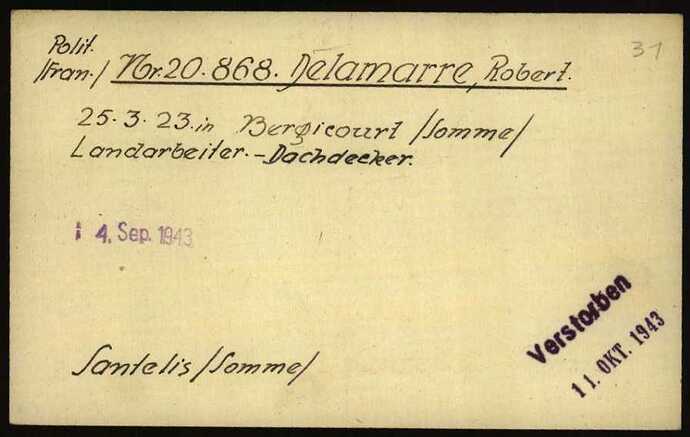 Polit.
/Fran./ Nr. 20.868. Delamarre, Robert.
31
25.3.23. in Bergicourt /Somme/
Landarbeiter. – Dachdecker.
4. Sep. 1943
Verstorben
11. OKT. 1943
Santelis /Somme/